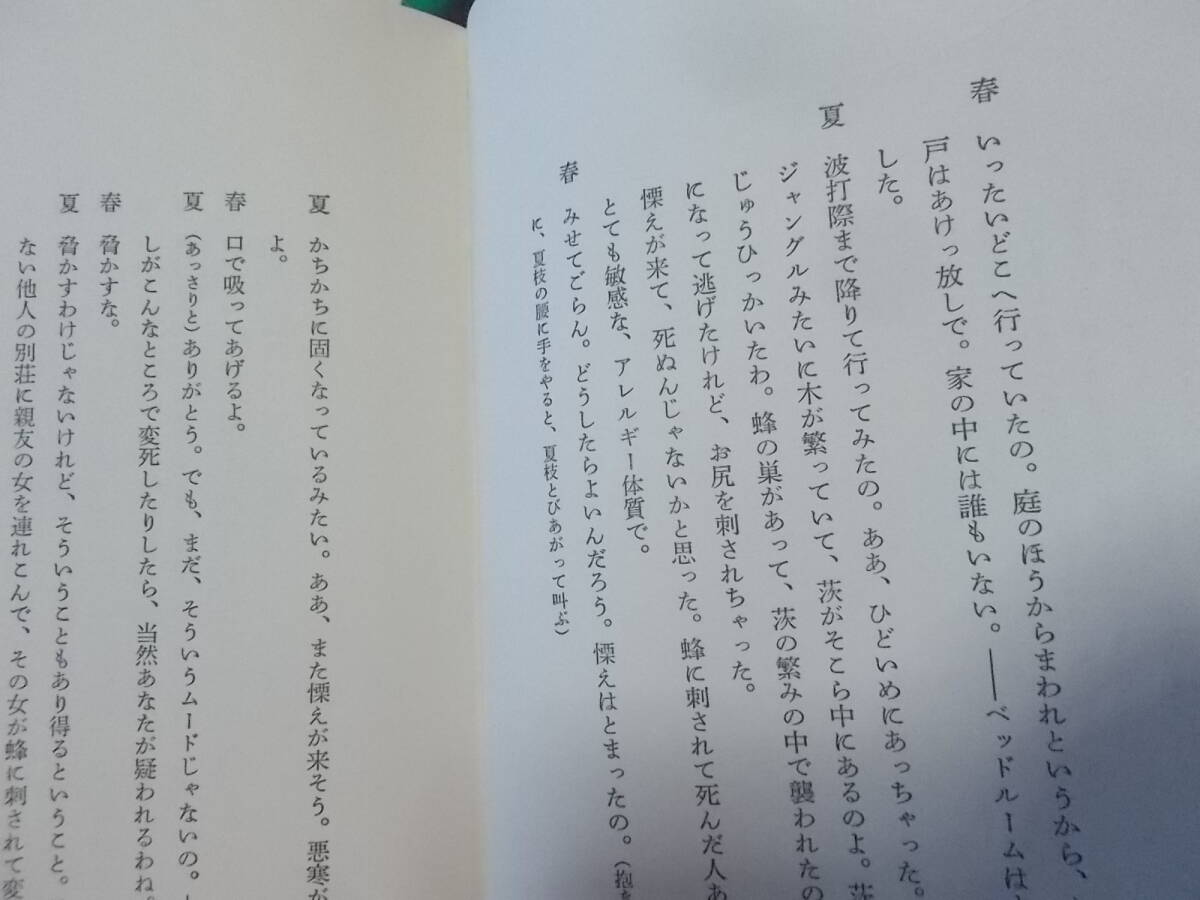 春　いったいどこへ行っていたの。庭のほうからまわれというから、
戸はあけっ放しで。家の中には誰もいない。――ベッドルームは
した。
夏　波打際まで降りて行ってみたの。ああ、ひどいめにあっちゃった。
ジャングルみたいに木が繁っていて、茨がそこら中にあるのよ。茨
じゅうひっかいたわ。蜂の巣があって、茨の繁みの中で襲われたの
になって逃げたけれど、お尻を刺されちゃった。
慄えが来て、死ぬんじゃないかと思った。蜂に刺されて死んだ人あ
とても敏感な、アレルギー体質で。
春　みせてごらん。どうしたらよいんだろう。慄えはとまったの。（抱き
に、夏枝の腰に手をやると、夏枝とびあがって叫ぶ）
夏　かちかちに固くなっているみたい。ああ、また慄えが来そう。悪寒が
よ。
春　口で吸ってあげるよ。
夏　（あっさりと）ありがとう。でも、まだ、そういうムードじゃないの。
しがこんなところで変死したりしたら、当然あなたが疑われるわね。
春　脅かすな。
夏　脅かすわけじゃないけれど、そういうこともあり得るということ。
ない他人の別荘に親友の女を連れこんで、その女が蜂に刺されて変